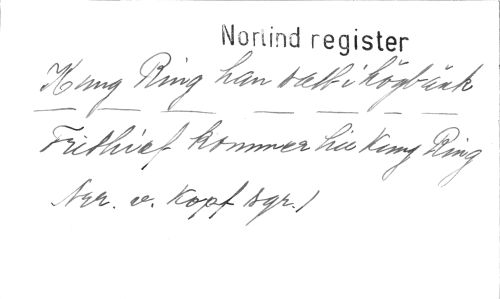 Norlind register
Kung Ring han satt i högbänk
Frithiof kommer till Kung Ring
Nyr. v. Kopf sgr.)